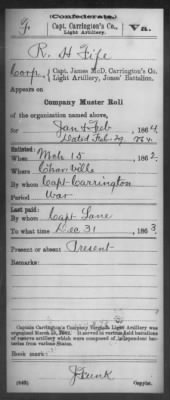 (Confederate.)
Capt. Carrington's Co.,
Light Artillery.
Va.
R. H. Fife
Corp., Capt. James McD. Carrington's Co.,
Light Artillery, Jones' Battalion.
Appears on
Company Muster Roll
of the organization named above,
for Jan & Feb, 1864
Dated Feb. 29, 1864.
Enlisted:
When Mch 15, 1862.
Where Char'ville
By whom Capt Carrington
Period War
Last paid:
By whom Capt Lane
To what time Dec 31, 1863
Present or absent Present
Remarks:
Captain Carrington's Company Virginia Light Artillery was
organized March 13, 1862. It served in various field batteries
of reserve artillery which were composed of independent bat-
teries from various States.
Book mark:
(642)
Copyist.